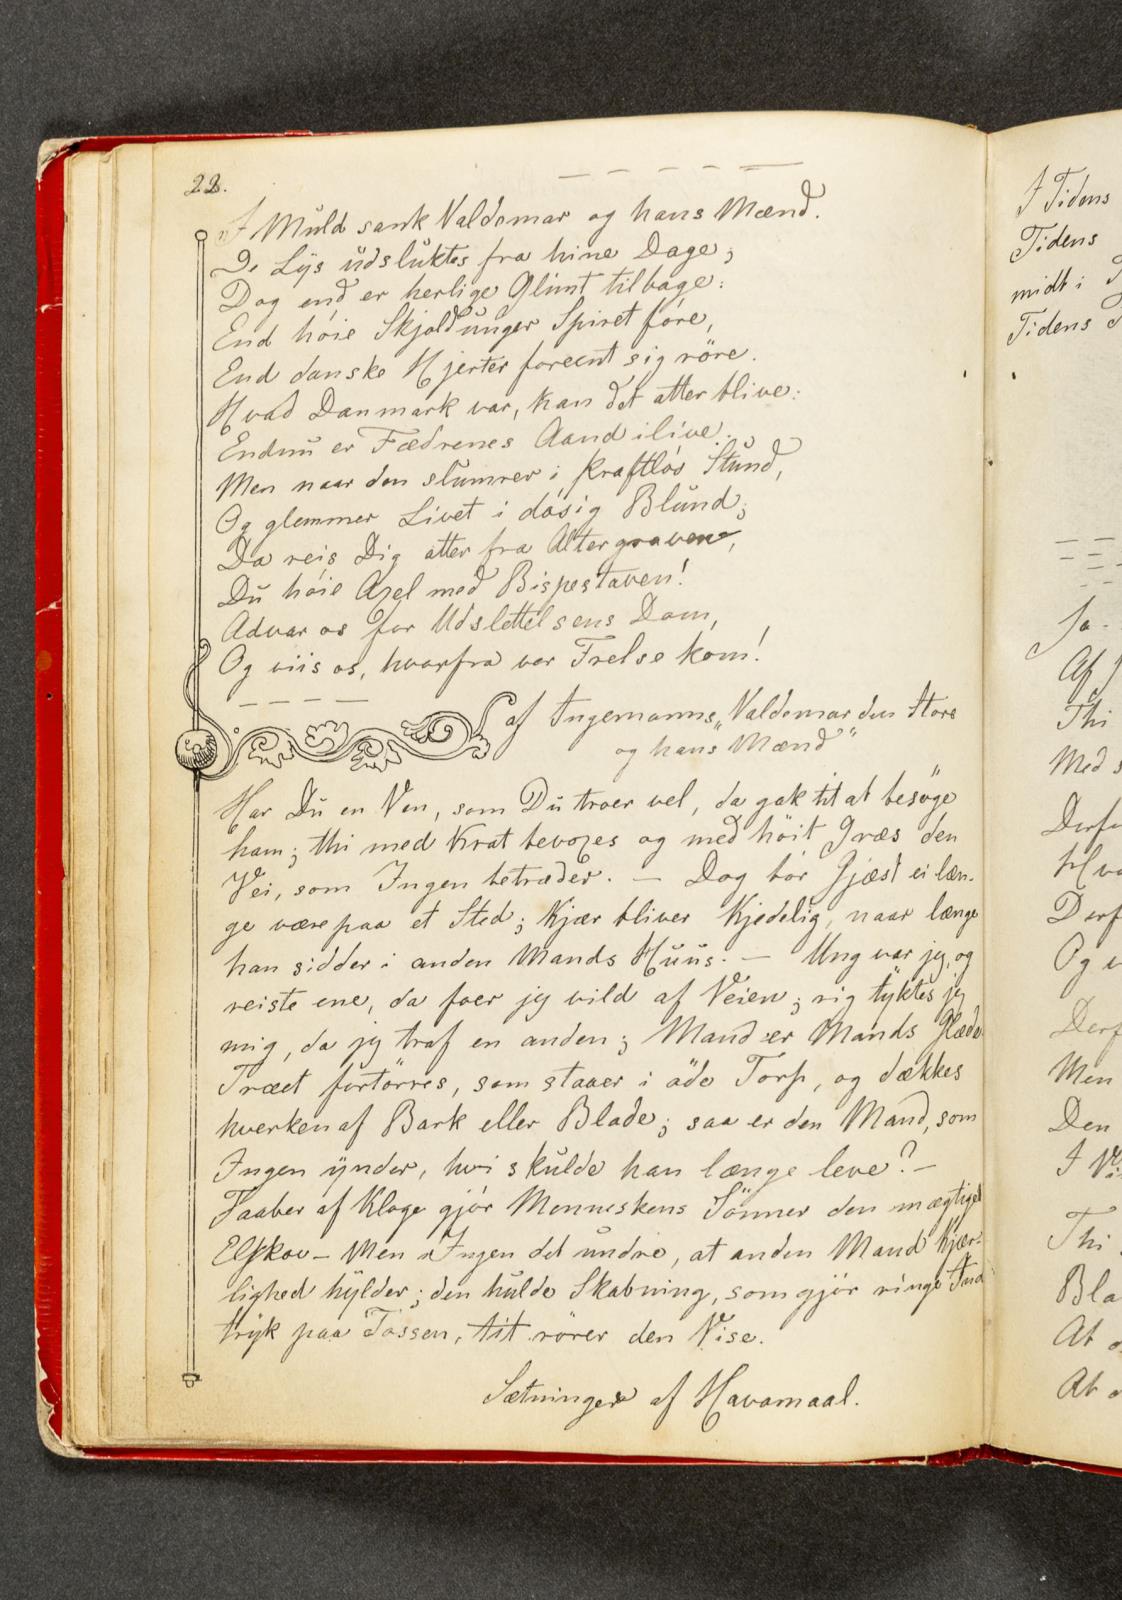 22.
I Muld sank Valdemar og hans Mænd.
De Lys udsluktes fra hine Dage;
Dog end er herlige Glimt tilbage:
End høie Skjoldunger Spiret føre,
End danske Hjerter foreent sig röre.
Hvad Danmark var, kan det atter blive:
Endnu er Fædrenes Aand ilive.
Men naar den slumrer i kraftløs Stund,
Og glemmer Livet i døsig Blund;
Da reis Dig atter fra Altergraven,
Du høie Axel med Bispestaven!
Advar os for Udslettelsens Dom,
Og viis os, hvorfra vor Frelse kom!
af Ingemanns „Valdemar den Store
og hans Mænd"
Har Du en Ven, som Du troer vel, da gak tit at besöge
ham; thi med Krat bevoxes og med höit Græs den
Vei, som Ingen betræder. — Dog bør Gjæst ei læn-
ge være paa et Sted; Kjær bliver Kjedelig, naar længe
han sidder i anden Mands Huus. — Ung var jeg, og
reiste ene, da foer jeg vild af Veien; rig tyktes jeg
mig, da jeg traf en anden; Mand er Mands Glæde
Træet fortörres, som staaer i öde Torp, og dækkes
hverken af Bark eller Blade; saa er den Mand, som
Ingen ynder, hvi skulde han længe leve? —
Taaber af Kloge gjør Menneskens Sönner den mægtige
Elskov — Men Ingen det undre, at anden Mand Kjær-
lighed hylder; den hulde Skabning, som gjör ringe Ind
tryk paa Tossen, tit rörer den Vise.
Sætninger af Havamaal.
I Tidens
Tidens
midt i
Tidens
Ja
Af
Thi
Med
Derfo
Hvo
Derf
Og
Derf
Men
Den
I
Thi
Bla
At
At